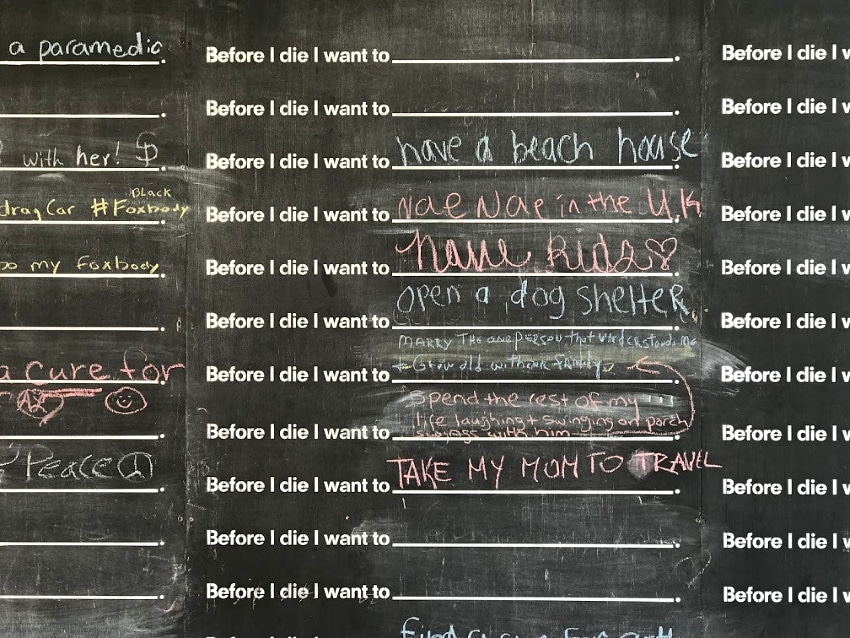 a paramedic.
Before I die I want to.
Before I die I
.
Before I die I want to.
Before I die I
with her!
Before I die I want to have a beach house.
Before I die I
BLACK
drag Car #Foxbody.
Before I die I want to Nae Nae in the U.K.
Before I die I
my foxbody.
Before I die I want to have kids♡.
Before I die I
.
Before I die I want to open a dog shelter.
Before I die I
a cure for.
MARRY THE one PERSON that understands Me
Before I die I want to + Grow old with our family.
Before I die I
spend the rest of my
life laughing + swinging on porch
.
Before I die I want to swings with him.
Before I die I
Peace.
Before I die I want to TAKE MY MOM TO TRAVEL.
Before I die I
.
Before I die I want to.
Before I die I
.
Before I die I want to.
Before I die I
find a cure for